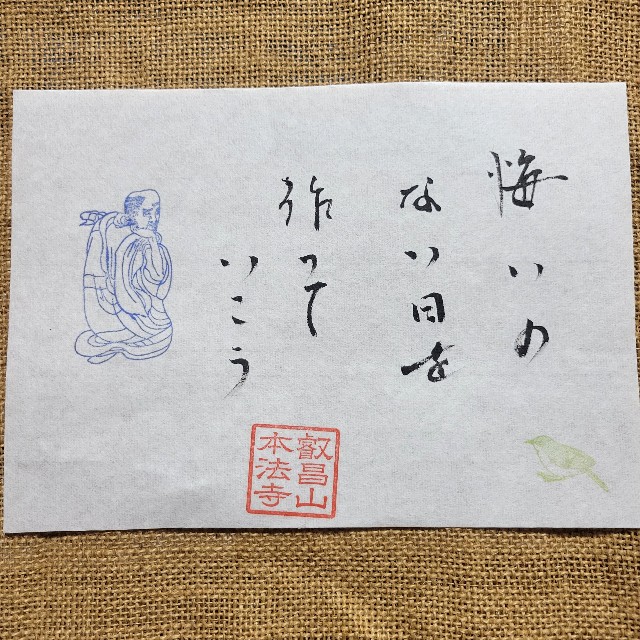 悔いの
ない日を
作って
いこう
叡昌山
本法寺